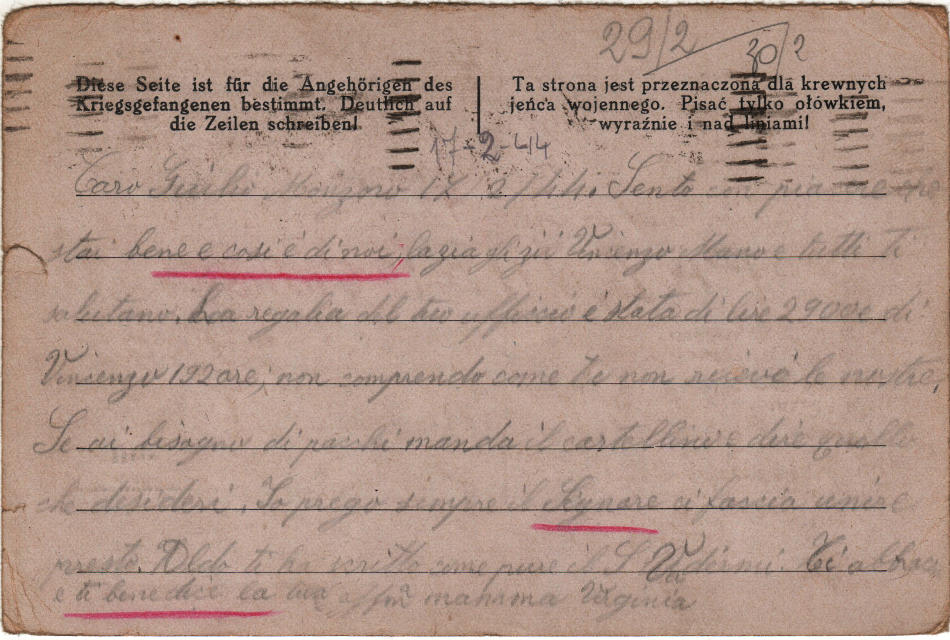 29/2 30/2
Diese Seite ist für die Angehörigen des
Kriegsgefangenen bestimmt. Deutlich auf
die Zeilen schreiben!
Ta strona jest przeznaczona dla krewnych
jeńca wojennego. Pisać tylko ołówkiem,
wyraźnie i nad liniami!
17-2-44
Caro Giulio 17/2/44. Sento con piacere che
stai bene e cosi é di noi, la zia gli zii Vincenzo e tutti ti
salutano. La regalia del tuo ufficio é stata di lire 2900 e di
Vincenzo 192 ore, non comprendo come te non ricevi le nostre,
Se ai bisogno di pacchi manda il cartellino e dire quello
che desideri. Io prego sempre il Signore ci faccia unire
presto. Aldo ti ha scritto come pure il Ti abbraccia
e ti benedice la tua affma mamma Virginia